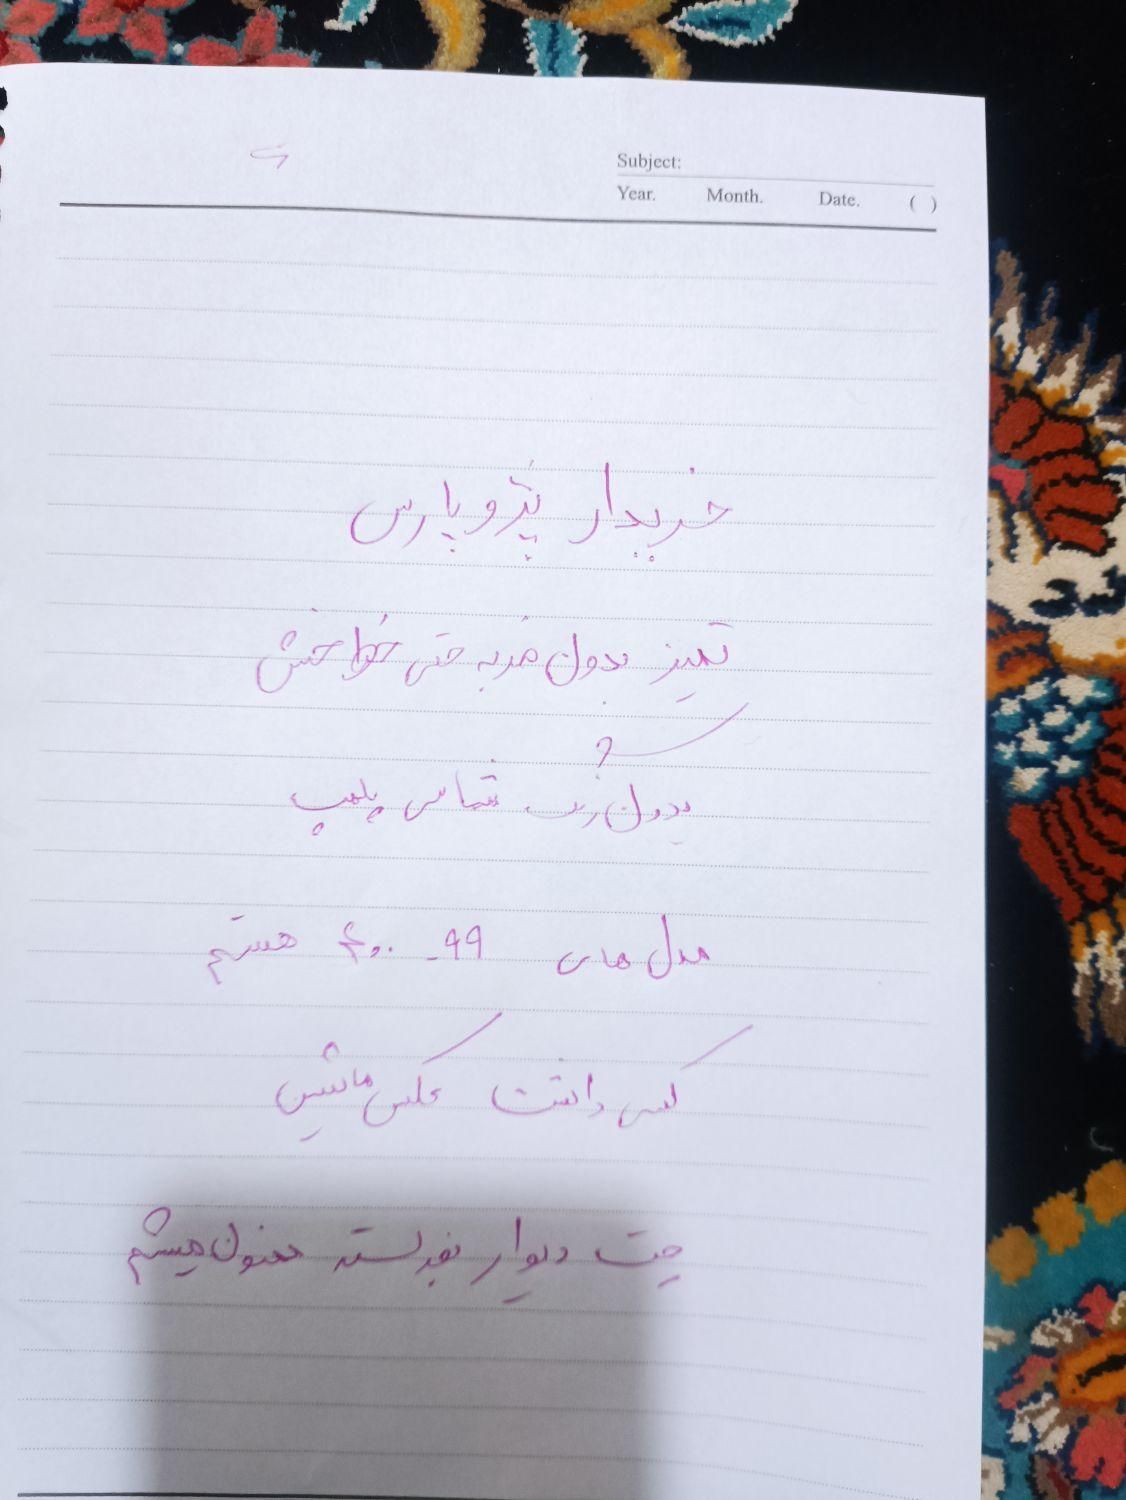 Subject:
Year. Month. Date. ( )
خریدار پژو پارس
تمیز بدون ضربه حتی خط و خش
بدون رنگ تمامی پلمپ
مدل های ۹۹ - ۴۰۰ هستم
کسی داشت عکس ماشین
چت دیوار بفرسته ممنون میشم